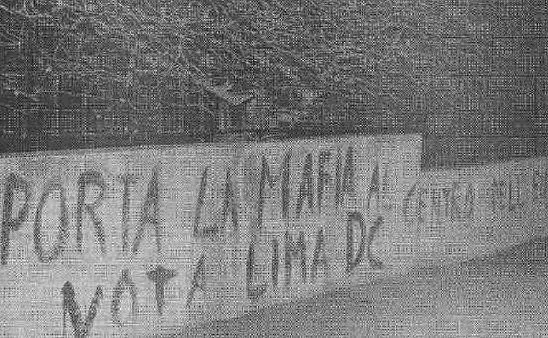 PORTA LA MAFIA AL CENTRO
NOTA LIMA DC